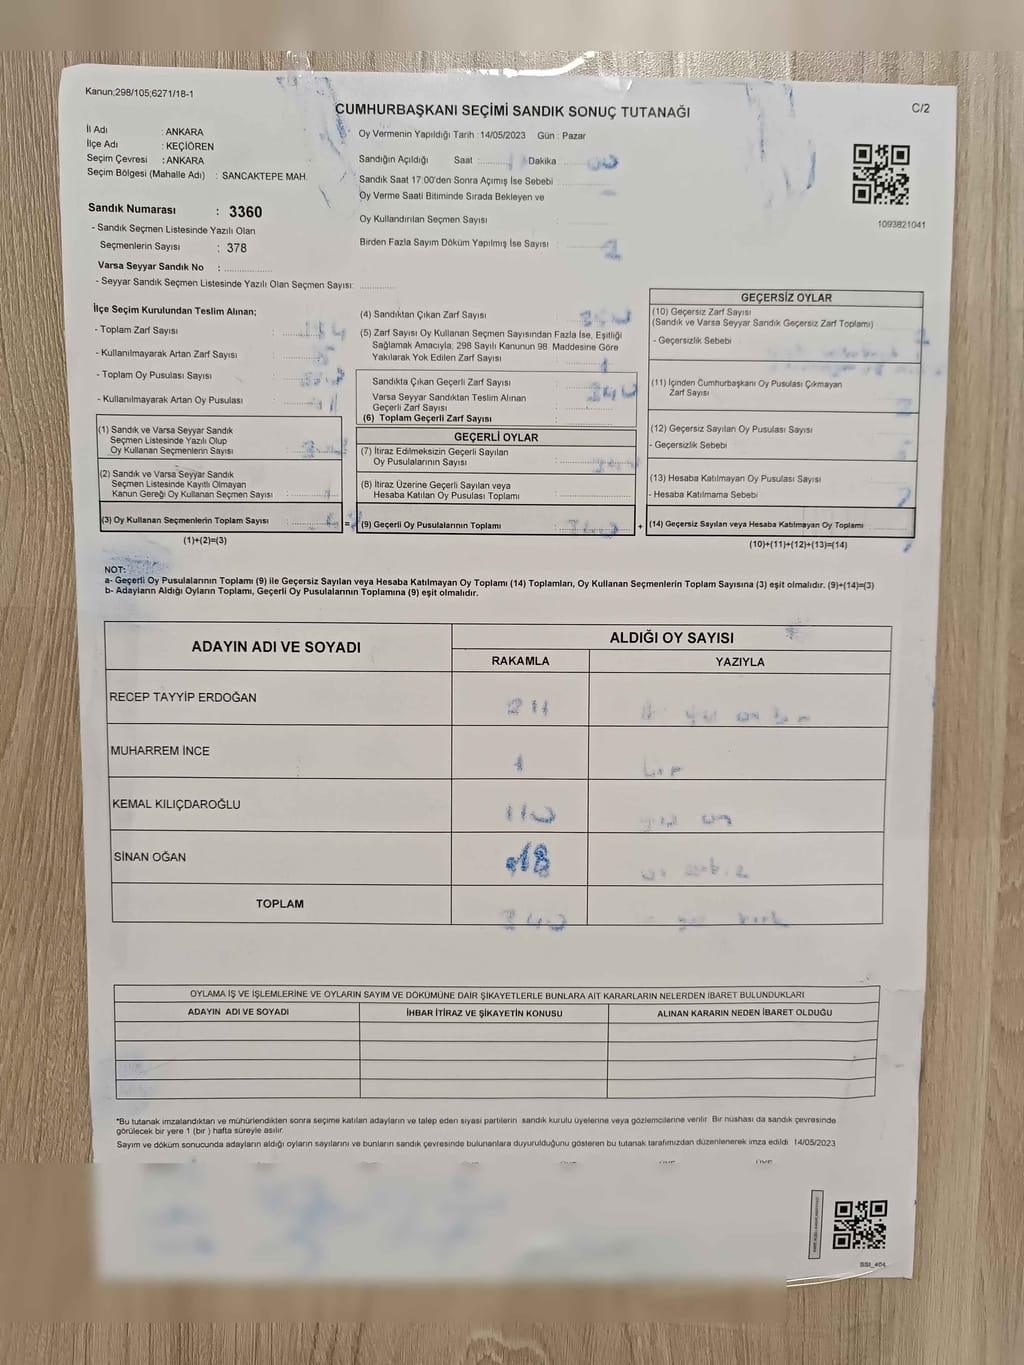 Kanun;298/105;6271/18-1
CUMHURBAŞKANI SEÇİMİ SANDIK SONUÇ TUTANAĞI
C/2
İl Adı : ANKARA
İlçe Adı : KEÇİÖREN
Seçim Çevresi : ANKARA
Seçim Bölgesi (Mahalle Adı) : SANCAKTEPE MAH.
Sandık Numarası : 3360
- Sandık Seçmen Listesinde Yazılı Olan
Seçmenlerin Sayısı : 378
Varsa Seyyar Sandık No :
- Seyyar Sandık Seçmen Listesinde Yazılı Olan Seçmen Sayısı:
Oy Vermenin Yapıldığı Tarih :14/05/2023 Gün : Pazar
Sandığın Açıldığı Saat : Dakika
Sandık Saat 17:00'den Sonra Açımış İse Sebebi
Oy Verme Saati Bitiminde Sırada Bekleyen ve
Oy Kullandırılan Seçmen Sayısı
Birden Fazla Sayım Döküm Yapılmış İse Sayısı :
1093821041
İlçe Seçim Kurulundan Teslim Alınan;
- Toplam Zarf Sayısı :
- Kullanılmayarak Artan Zarf Sayısı :
- Toplam Oy Pusulası Sayısı :
- Kullanılmayarak Artan Oy Pusulası :
(1) Sandık ve Varsa Seyyar Sandık
Seçmen Listesinde Yazılı Olup
Oy Kullanan Seçmenlerin Sayısı :
(2) Sandık ve Varsa Seyyar Sandık
Seçmen Listesinde Kayıtlı Olmayan
Kanun Gereği Oy Kullanan Seçmen Sayısı :
(3) Oy Kullanan Seçmenlerin Toplam Sayısı :
(1)+(2)=(3)
(4) Sandıktan Çıkan Zarf Sayısı :
(5) Zarf Sayısı Oy Kullanan Seçmen Sayısından Fazla İse, Eşitliği
Sağlamak Amacıyla; 298 Sayılı Kanunun 98. Maddesine Göre
Yakılarak Yok Edilen Zarf Sayısı :
Sandıkta Çıkan Geçerli Zarf Sayısı :
Varsa Seyyar Sandıktan Teslim Alınan
Geçerli Zarf Sayısı :
(6) Toplam Geçerli Zarf Sayısı
GEÇERLİ OYLAR
(7) İtiraz Edilmeksizin Geçerli Sayılan
Oy Pusulalarının Sayısı :
(8) İtiraz Üzerine Geçerli Sayılan veya
Hesaba Katılan Oy Pusulası Toplamı :
= (9) Geçerli Oy Pusulalarının Toplamı : +
GEÇERSİZ OYLAR
(10) Geçersiz Zarf Sayısı
(Sandık ve Varsa Seyyar Sandık Geçersiz Zarf Toplamı)
- Geçersizlik Sebebi
(11) İçinden Cumhurbaşkanı Oy Pusulası Çıkmayan
Zarf Sayısı
(12) Geçersiz Sayılan Oy Pusulası Sayısı
- Geçersizlik Sebebi
(13) Hesaba Katılmayan Oy Pusulası Sayısı
- Hesaba Katılmama Sebebi
(14) Geçersiz Sayılan veya Hesaba Katılmayan Oy Toplamı
(10)+(11)+(12)+(13)=(14)
NOT:
a- Geçerli Oy Pusulalarının Toplamı (9) ile Geçersiz Sayılan veya Hesaba Katılmayan Oy Toplamı (14) Toplamları, Oy Kullanan Seçmenlerin Toplam Sayısına (3) eşit olmalıdır. (9)+(14)=(3)
b- Adayların Aldığı Oyların Toplamı, Geçerli Oy Pusulalarının Toplamına (9) eşit olmalıdır.
ADAYIN ADI VE SOYADI
ALDIĞI OY SAYISI
RAKAMLA YAZIYLA
RECEP TAYYİP ERDOĞAN 211
MUHARREM İNCE 1 bir
KEMAL KILIÇDAROĞLU
SİNAN OĞAN 18
TOPLAM
OYLAMA İŞ VE İŞLEMLERİNE VE OYLARIN SAYIM VE DÖKÜMÜNE DAİR ŞİKAYETLERLE BUNLARA AİT KARARLARIN NELERDEN İBARET BULUNDUKLARI
ADAYIN ADI VE SOYADI İHBAR İTİRAZ VE ŞİKAYETİN KONUSU ALINAN KARARIN NEDEN İBARET OLDUĞU
*Bu tutanak imzalandıktan ve mühürlendikten sonra seçime katılan adayların ve talep eden siyasi partilerin sandık kurulu üyelerine veya gözlemcilerine verilir. Bir nüshası da sandık çevresinde
görülecek bir yere 1 (bir ) hafta süreyle asılır.
Sayım ve döküm sonucunda adayların aldığı oyların sayılarını ve bunların sandık çevresinde bulunanlara duyurulduğunu gösteren bu tutanak tarafımızdan düzenlenerek imza edildi. 14/05/2023
SSI_404